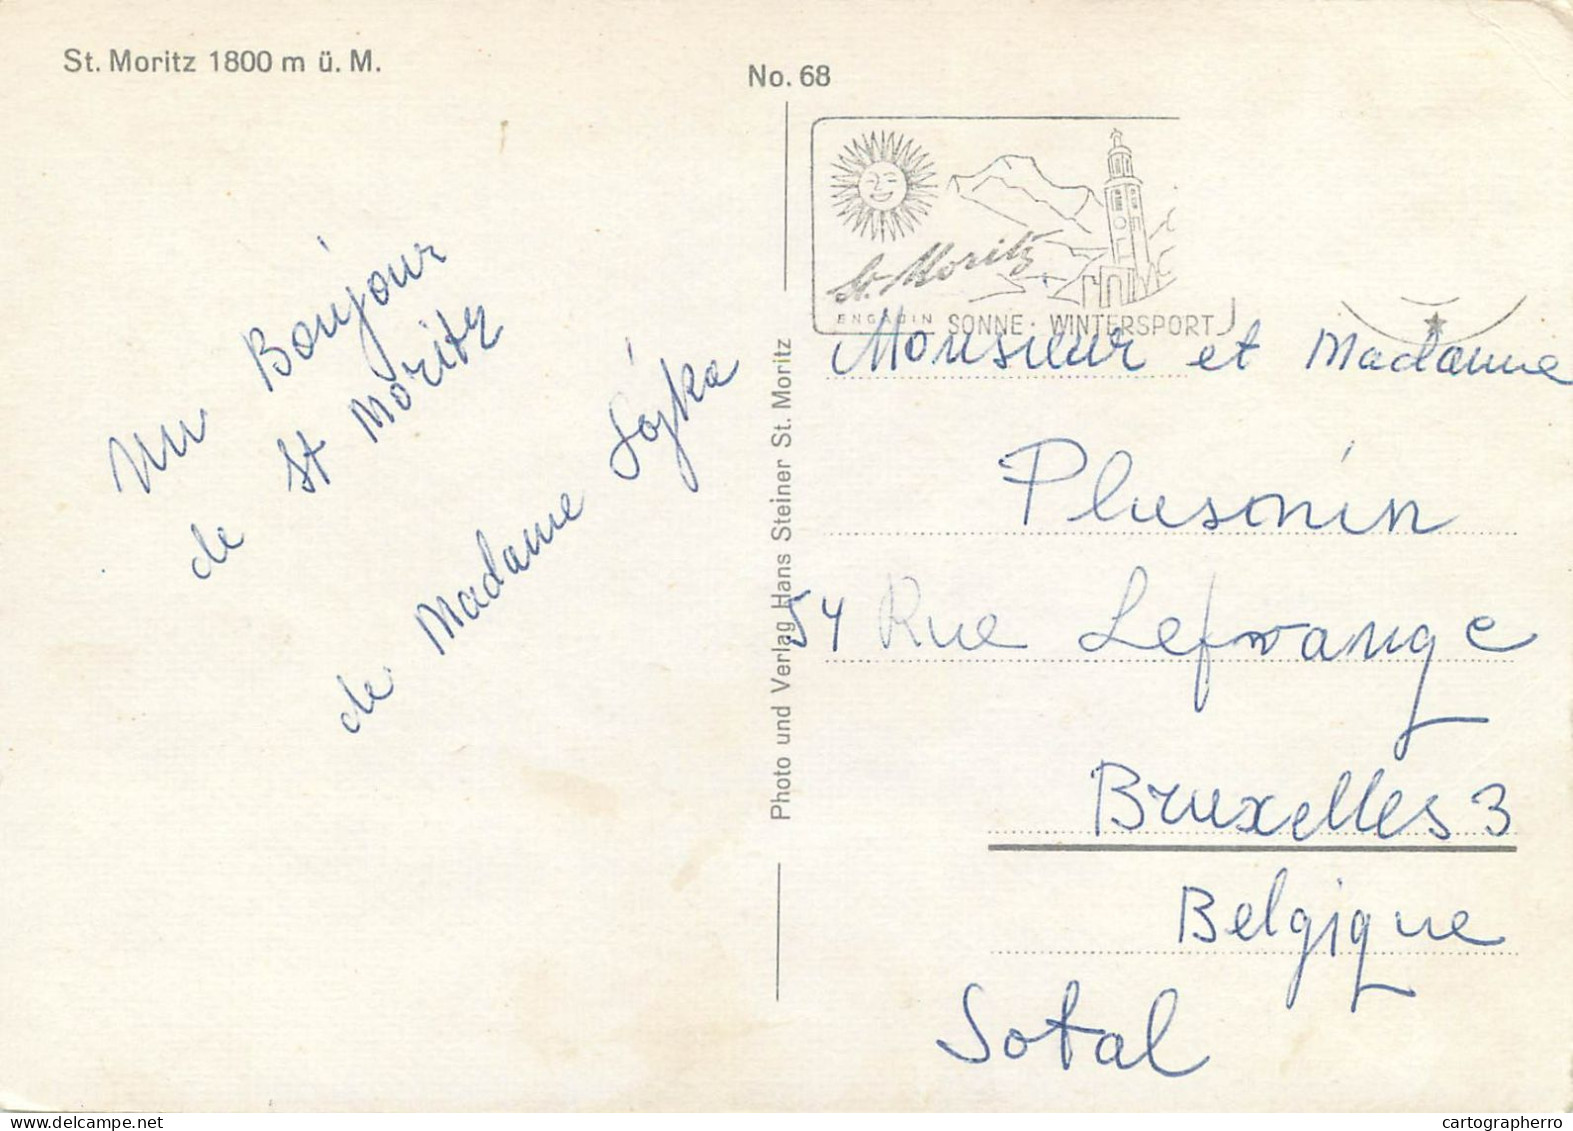 St. Moritz 1800 m ü. M.
No. 68
St. Moritz
ENGADIN SONNE · WINTERSPORT
Un Bonjour
de St Moritz
de Madame Sojka
Photo und Verlag Hans Steiner St. Moritz
Monsieur et Madame
Plusnin
54 Rue Lefrange
Bruxelles 3
Belgique
Sotal
cartographerro